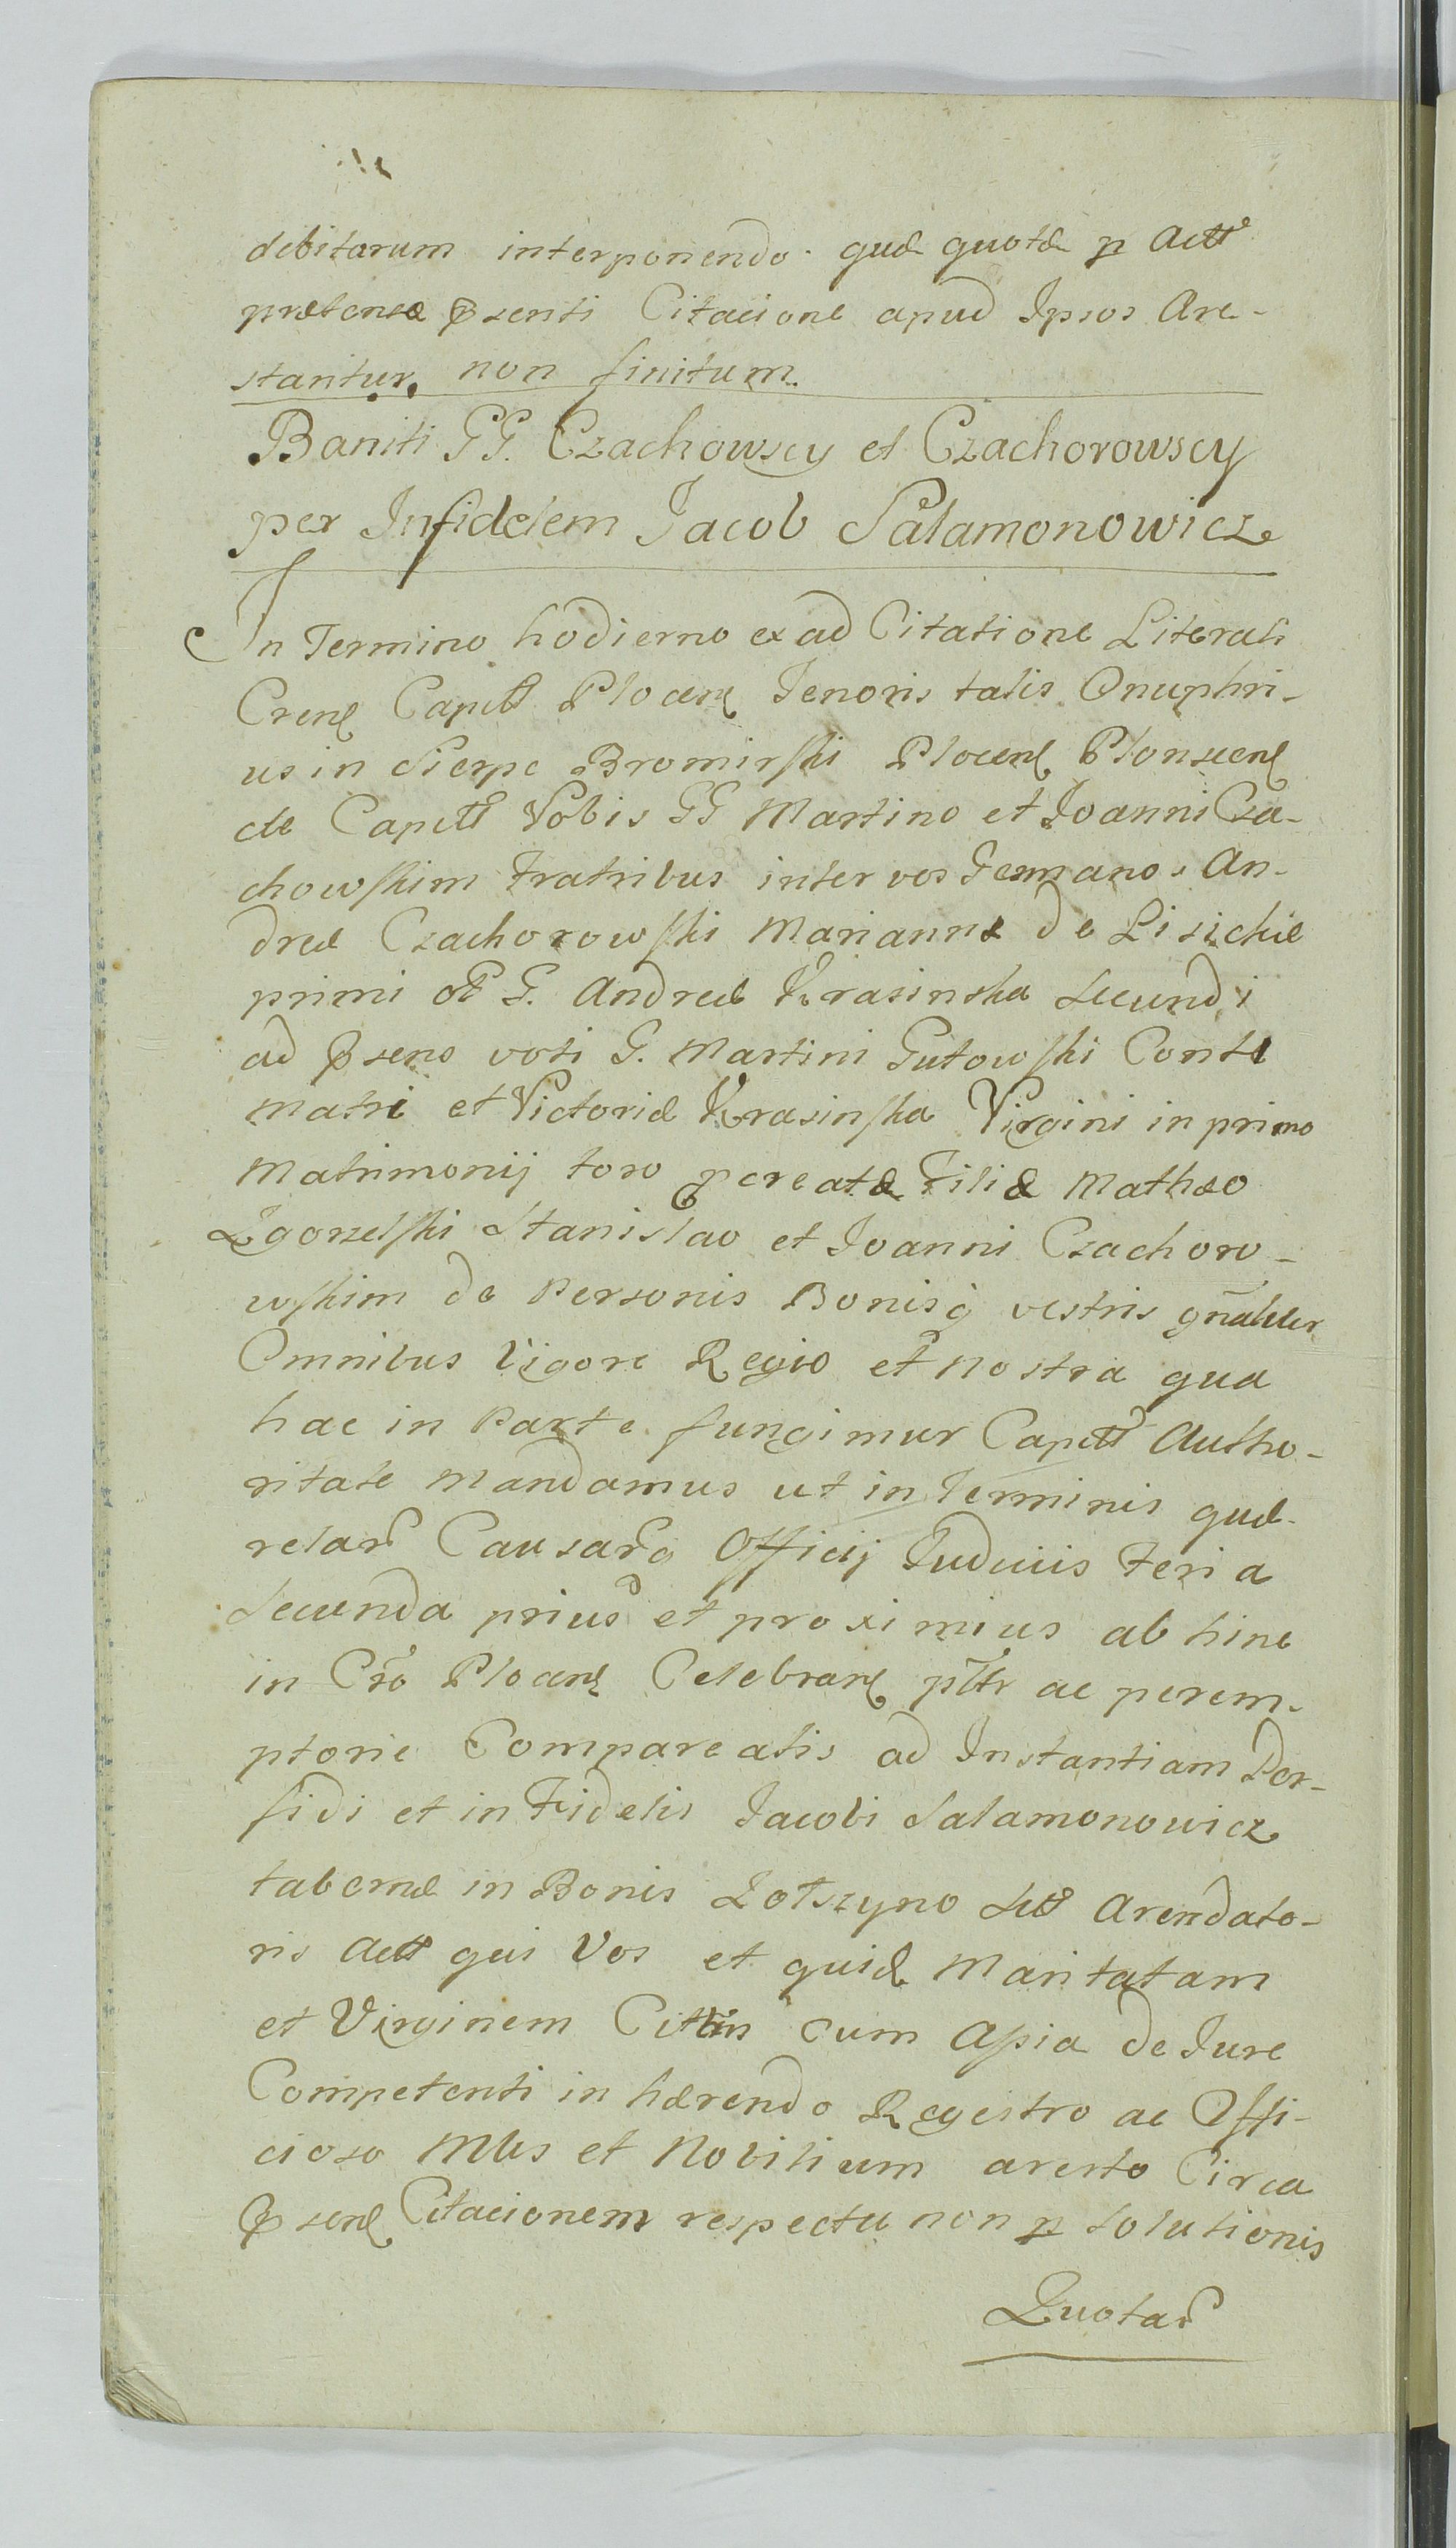 debitorum interponendo. quæ quotæ p Actt
prætensæ psenti Citacione apud Ipsos Are-
stantur, non finitum.
Baniti GG. Czachowscy et Czachorowscy
per Infidelem Jacob Salamonowicz
In Termino hodierno ex ad Citatione Literali
Cren Capitt Plocen Tenoris talis Onuphri-
us in Sierpc Bromirski Plocen Plonscen
de Capitt Vobis GG Martino et Joanni Cza-
chowskim Fratribus inter vos Germanos An-
dreæ Czachorowski Mariannæ de Lisickie
primi ol G. Andreæ Krasinska Secundi
ad psens voti G. Martini Gutowski Conti
Matri et Victoriæ Krasinska Virgini in primo
Matrimonij toro pcreatæ Filiæ Mathæo
Zgorzelski Stanislao et Joanni Czachoro-
wskim de Personis Bonisq vestris gnaliter
Omnibus Vigore Regio et nostra qua
hac in Parte fungimur Capitt Autho-
ritate Mandamus ut in Terminis quæ-
relar Causarq Officij Judiciis Feria
Secunda prius et proximius ab hinc
in Cro Plocen Celebran pltr ac perem-
ptorie Compareatis ad Instantiam Per-
fidi et in Fidelis Jacobi Salamonowicz
tabernæ in Bonis Lotszyno Sitt Arendato-
ris Actt qui Vos et quid Maritatam
et Virginem Cittin cum Assia de Jure
Competenti in hærendo Regestro ac Offi-
cioso Mlis et Nobilium aresto Circa
psen Citacionem respectu non p solutionis
Quotar